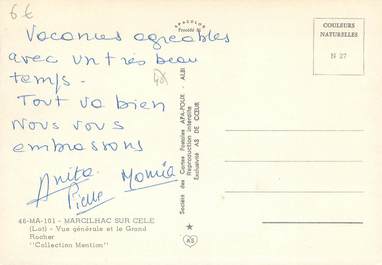 6€
Vacances agreables
avec un très beau
temps.
Tout va bien
Nous vous
embrassons
Anita
Pierre
46-MA-101 - MARCILHAC SUR CELE
(Lot) - Vue générale et le Grand
Rocher
"Collection Mention"
SPACOLOR
Procédé
Société des Cartes Postales APA-POUX - ALBI
Reproduction interdite
Exclusivité AS DE CŒUR
AS
COULEURS
NATURELLES
N 27